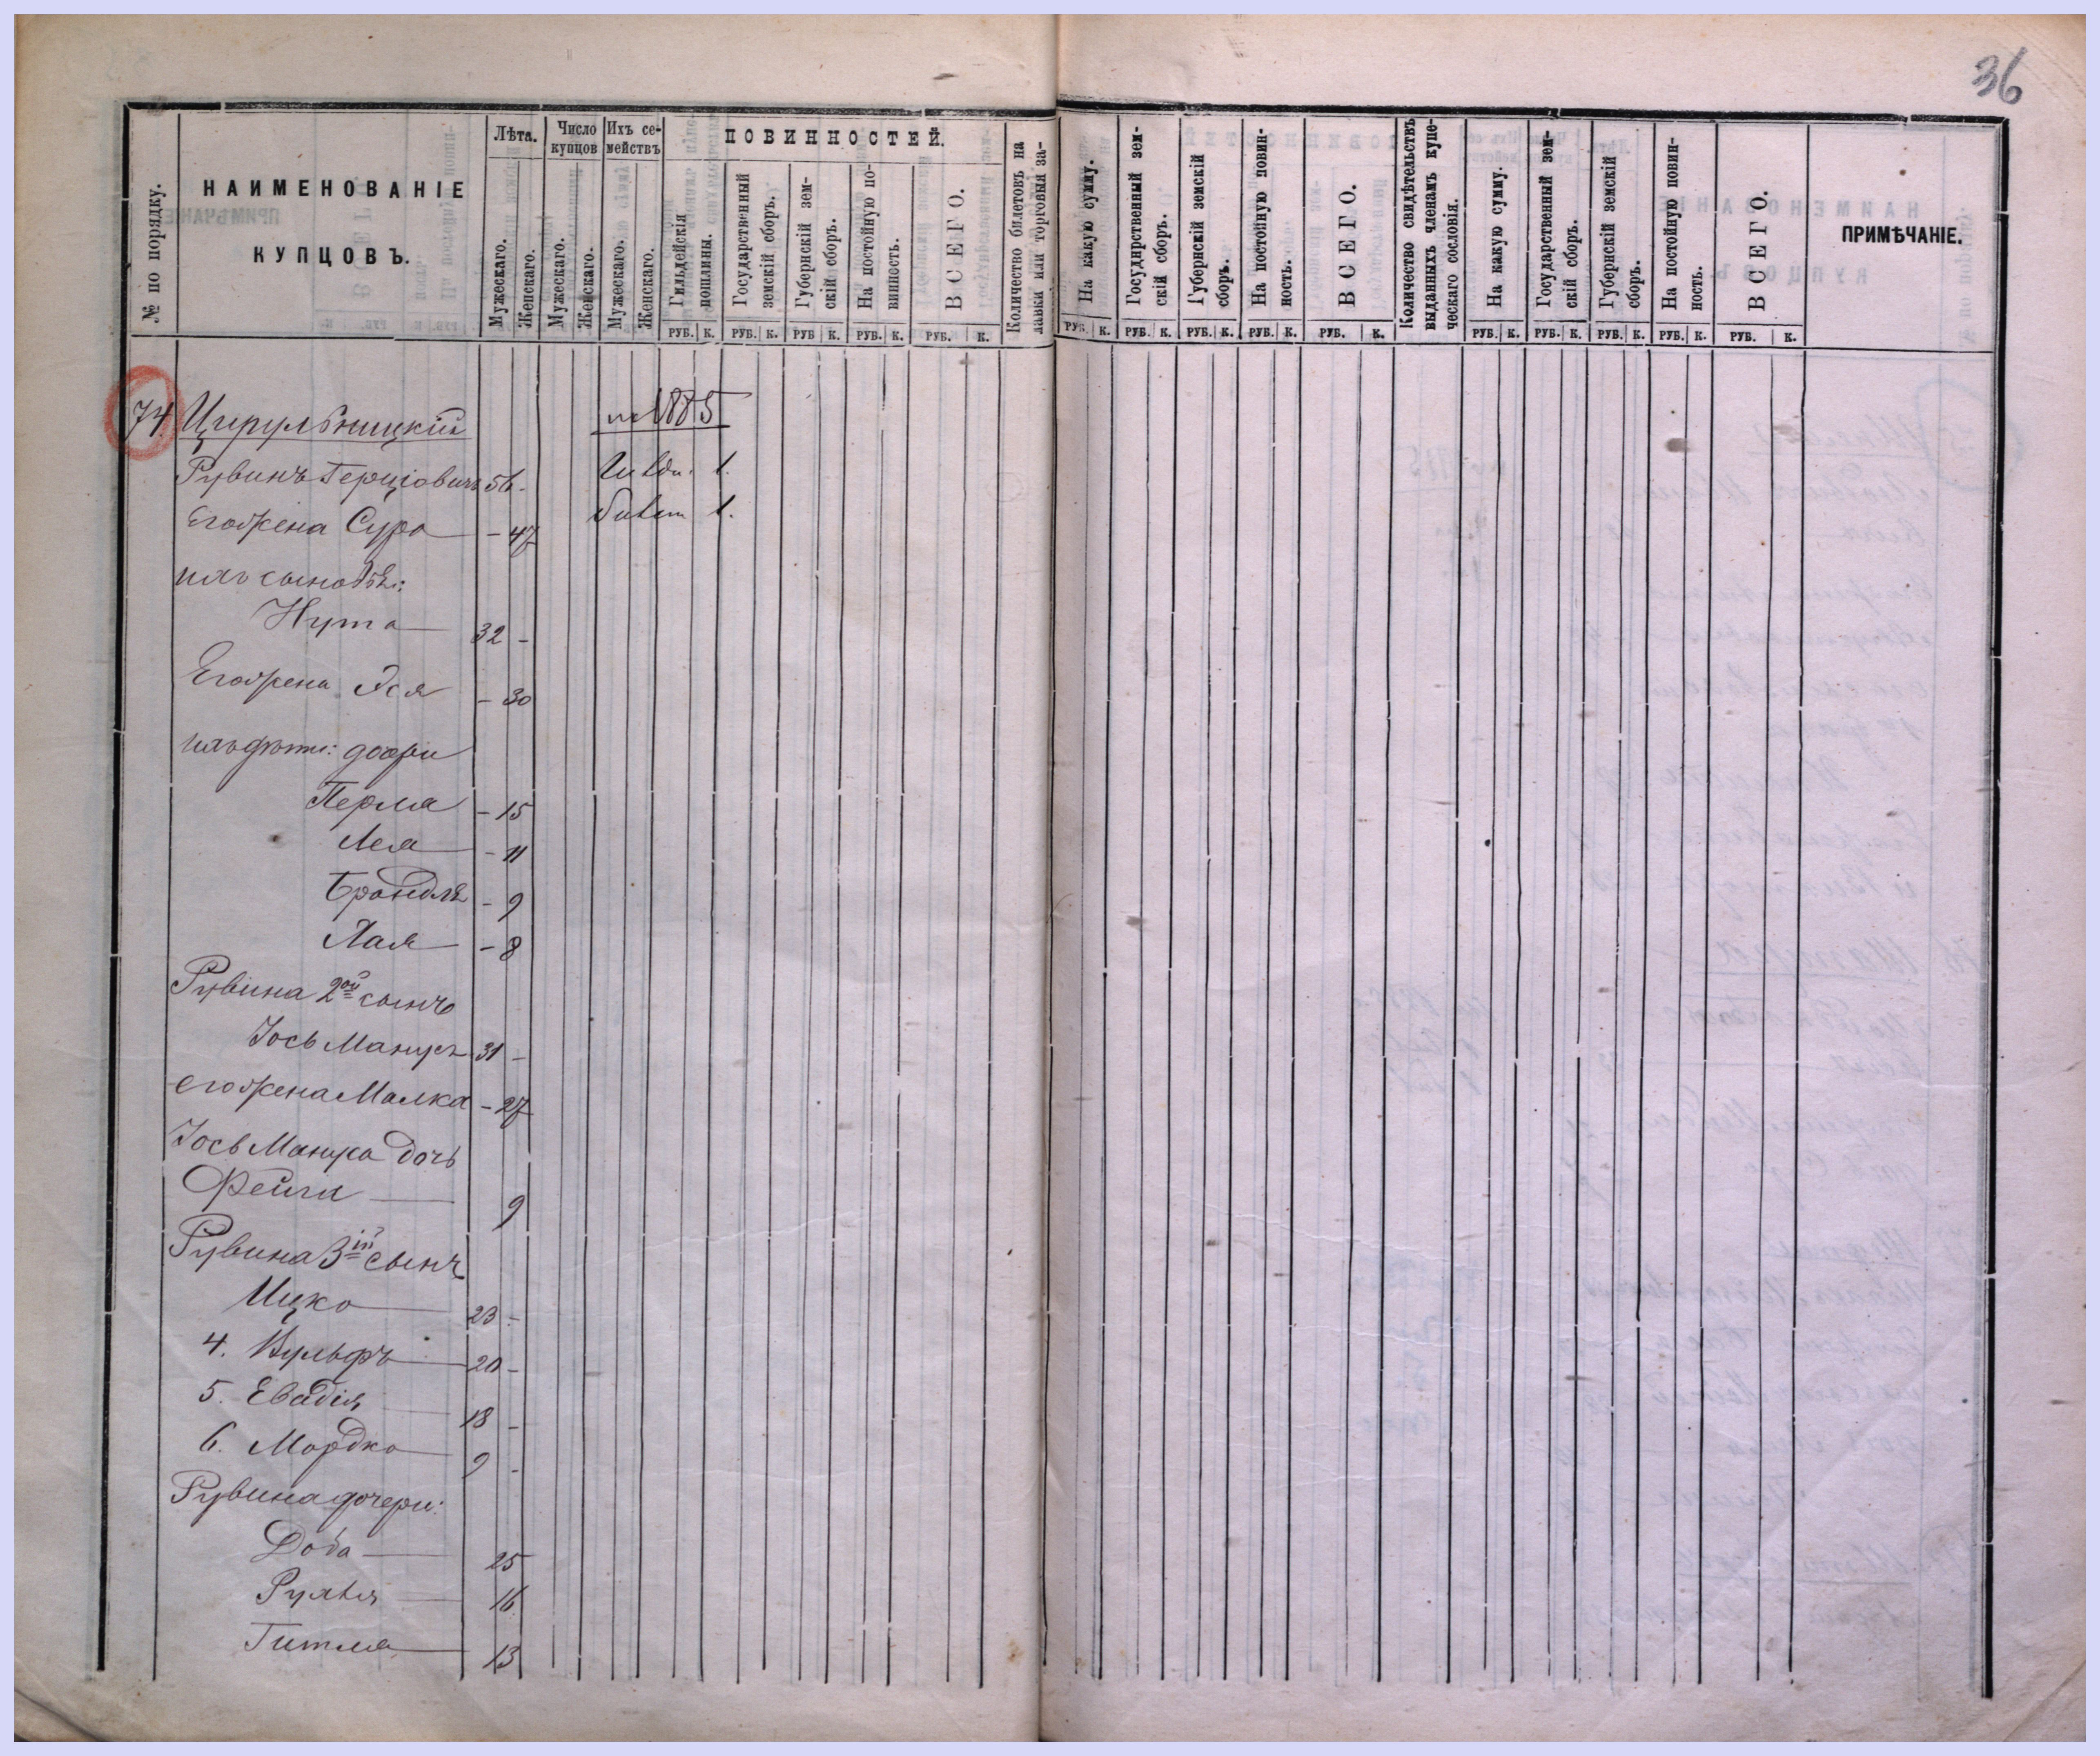 36
№ по порядку.
НАИМЕНОВАНІЕ
КУПЦОВЪ.
Лѣта.
Мужескаго.
Женскаго.
Число купцов
Мужескаго.
Женскаго.
Ихъ се-
мействъ
Мужескаго.
Женскаго.
ПОВИННОСТЕЙ.
Гильдейскія
пошлины.
Государственный
земскій сборъ.
Губернскій зем-
скій сборъ.
На постойную по-
винность.
ВСЕГО.
Количество билетовъ на
лавки или торговыя за-
На какую сумму.
Государственный зем-
скій сборъ.
Губернскій земскій
сборъ.
На постойную повин-
ность.
ВСЕГО.
Количество свидѣтельствъ
выданныхъ членамъ купе-
ческаго сословія.
На какую сумму.
Государственный зем-
скій сборъ.
Губернскій земскій
сборъ.
На постойную повин-
ность.
ВСЕГО.
ПРИМѢЧАНІЕ.
РУБ. К. РУБ. К. РУБ К. РУБ. К. РУБ. К. РУБ. К. РУБ. К. РУБ. К. РУБ. К. РУБ. К. РУБ. К. РУБ. К. РУБ. К. РУБ. К. РУБ. К.
74. Цирульницкій 1885
Рувинъ Герціовичъ 56 - Гильд. 1.
Его жена Сура - 47 билет 1.
ихъ сыновья:
Нута 32 -
Его жена Эся - 30
ихъ дѣти: дочери
Перля - 15
Лея - 11
Брандля - 9
Хая - 8
Рувина 2ой сынъ
Іось Манусъ 31 -
его жена Малка - 27
Іось Мануса дочь
Фейга 9
Рувина 3ій сынъ
Ицко 23 -
4. Вульфъ 20 -
5. Евадія 18 -
6. Мордко 9 -
Рувина дочери:
Доба 25
Рухля 16
Гитля 13